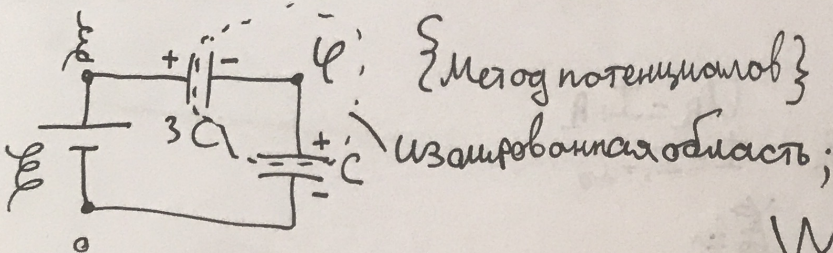 ℰ
+ - φ; {Метод потенциалов}
ℰ 3C + C изолированная область;
-
0 W